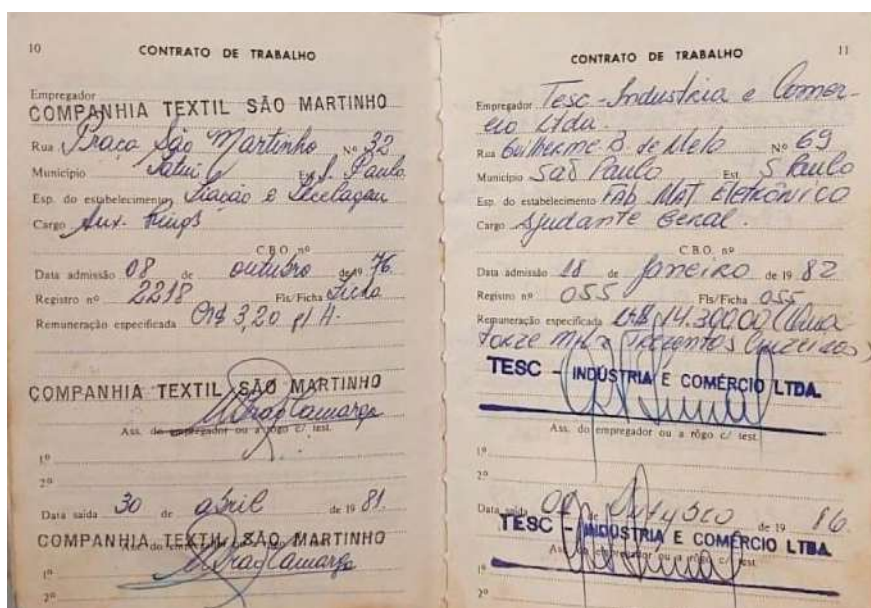 10
CONTRATO DE TRABALHO
Empregador
COMPANHIA TEXTIL SÃO MARTINHO
Rua Praça São Martinho Nº 32
Municipio Tatuí Est. S. Paulo
Esp. do estabelecimento Fiação e Tecelagem
Cargo Aux. Rings
C.B.O. nº
Data admissão 08 de outubro de 19 76.
Registro nº 2218 Fls/Ficha Ficha
Remuneração especificada Cr$ 3,20 p/ H.
COMPANHIA TEXTIL SÃO MARTINHO
Ass. do empregador ou a rôgo c/ test.
1º
2º
Data saída 30 de abril de 19 81.
COMPANHIA TEXTIL SÃO MARTINHO
Ass. do empregador ou a rôgo c/ test.
1º
2º
11
CONTRATO DE TRABALHO
Empregador Tesc - Industria e Comer-
cio Ltda.
Rua Guilherme B. de Melo Nº 69
Municipio São Paulo Est. S Paulo
Esp. do estabelecimento FAb MAT EletRôNiCO
Cargo Ajudante Geral.
C.B.O. nº
Data admissão 18 de janeiro de 19 82
Registro nº 055 Fls/Ficha 055
Remuneração especificada 14.300,00 (
torze Mil e Trezentos Cruzeiros)
TESC - INDÚSTRIA E COMÉRCIO LTDA.
Ass. do empregador ou a rôgo c/ test.
1º
2º
Data saída de de 19 86
TESC - INDÚSTRIA E COMÉRCIO LTDA.
Ass. do empregador ou a rôgo c/ test.
1º
2º